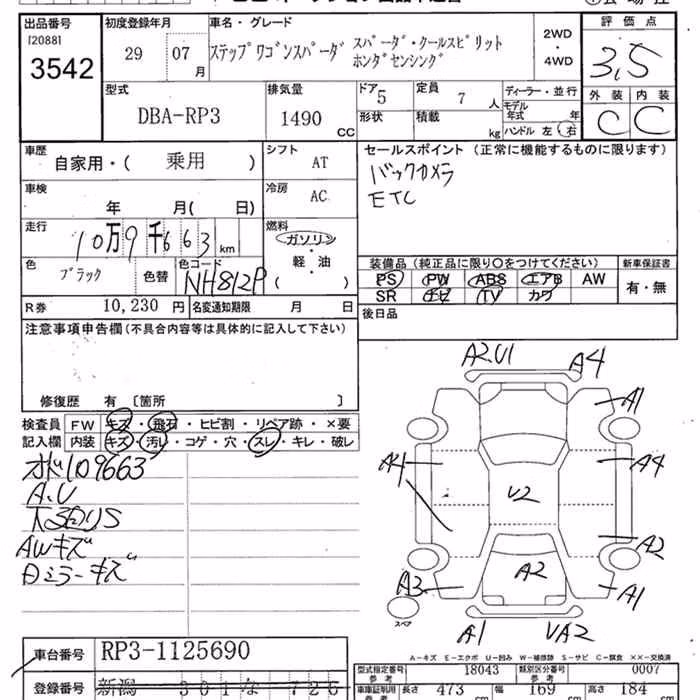 出品番号 初度登録年月 車名・グレード 評価点
[20881
3542 29 07 月 ステップワゴンスパーダ スパーダ・クールスピリット ホンダセンシング 2WD・4WD 3,5
外装 内装
C C
型式 排気量 ドア 定員 ディーラー・並行
DBA-RP3 1490 CC 5 7 人 モデル年式 年
形状 積載 kg ハンドル 左 右
車歴 シフト セールスポイント (正常に機能するものに限ります)
自家用・( 乗用 ) AT バックカメラ
車検 冷房 ETC
年 月( 日) AC
走行 燃料
10万9千663 km ガソリン
軽・油
( )
色 ブラック 色替 色コード NH812P
装備品(純正品に限り○をつけてください) 新車保証書
PS PW ABS エアB AW 有・無
SR ナビ TV カワ
R券 10,230 円 名変通知期限 月 日 後日品
注意事項申告欄(不具合内容等は具体的に記入して下さい)
修復歴 有 〔箇所 〕
検査員 FW キズ・飛石・ヒビ割・リペア跡・×要
記入欄 内装 キズ・汚レ・コゲ・穴・スレ・キレ・破レ
109663
A.U
AWキズ
ミラーキズ
A2.U1 A4
A1
A4 A4
U2
A2
A3 A2 A1
スペア
A1 UA2
A-キズ E-エクボ U-凹み W-補修跡 S-サビ C-腐食 ××-交換済
車台番号 RP3-1125690
型式指定番号 参考 18043 類別区分番号 参考 0007
登録番号 新潟 301 な 726
車庫証明用 参考 長さ 473 cm 幅 169 cm 高さ 184 cm